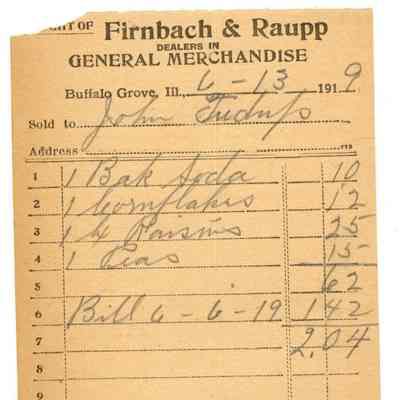 GHT OF Firnbach & Raupp
DEALERS IN
GENERAL MERCHANDISE
Buffalo Grove, Ill., 6-13 1919
Sold to John
Address
1 1 Bak Soda 10
2 1 Cornflakes 12
3 1 # Raisins 25
4 1 Peas 15
5 62
6 Bill 6-6-19 142
7 2.04
8